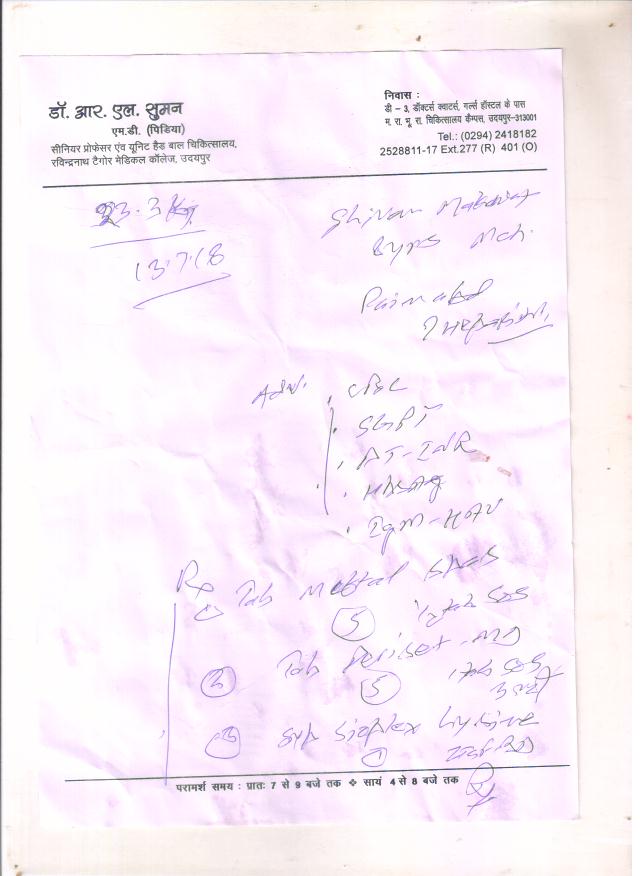 डॉ. आर. एल. सुमन
एम.डी. (पिडिया)
सीनियर प्रोफेसर एंव यूनिट हैड बाल चिकित्सालय,
रविन्द्रनाथ टैगोर मेडिकल कॉलेज, उदयपुर
निवास :
डी – 3, डॉक्टर्स क्वाटर्स, गर्ल्स हॉस्टल के पास
म. रा. भू. रा. चिकित्सालय कैम्पस, उदयपुर-313001
Tel.: (0294) 2418182
2528811-17 Ext.277 (R) 401 (O)
23.3 Kg
13.7.18
Shivam
8yrs Mch.
Adv. CBC
SGPT
PT-INR
HBsAg
IgM-HAV
Rx Tab Meftal Spas
5 SOS
2 Tab Periset-MD
5 1tab SOS
3 Syp Lysine
1
परामर्श समय : प्रातः 7 से 9 बजे तक ❖ सायं 4 से 8 बजे तक